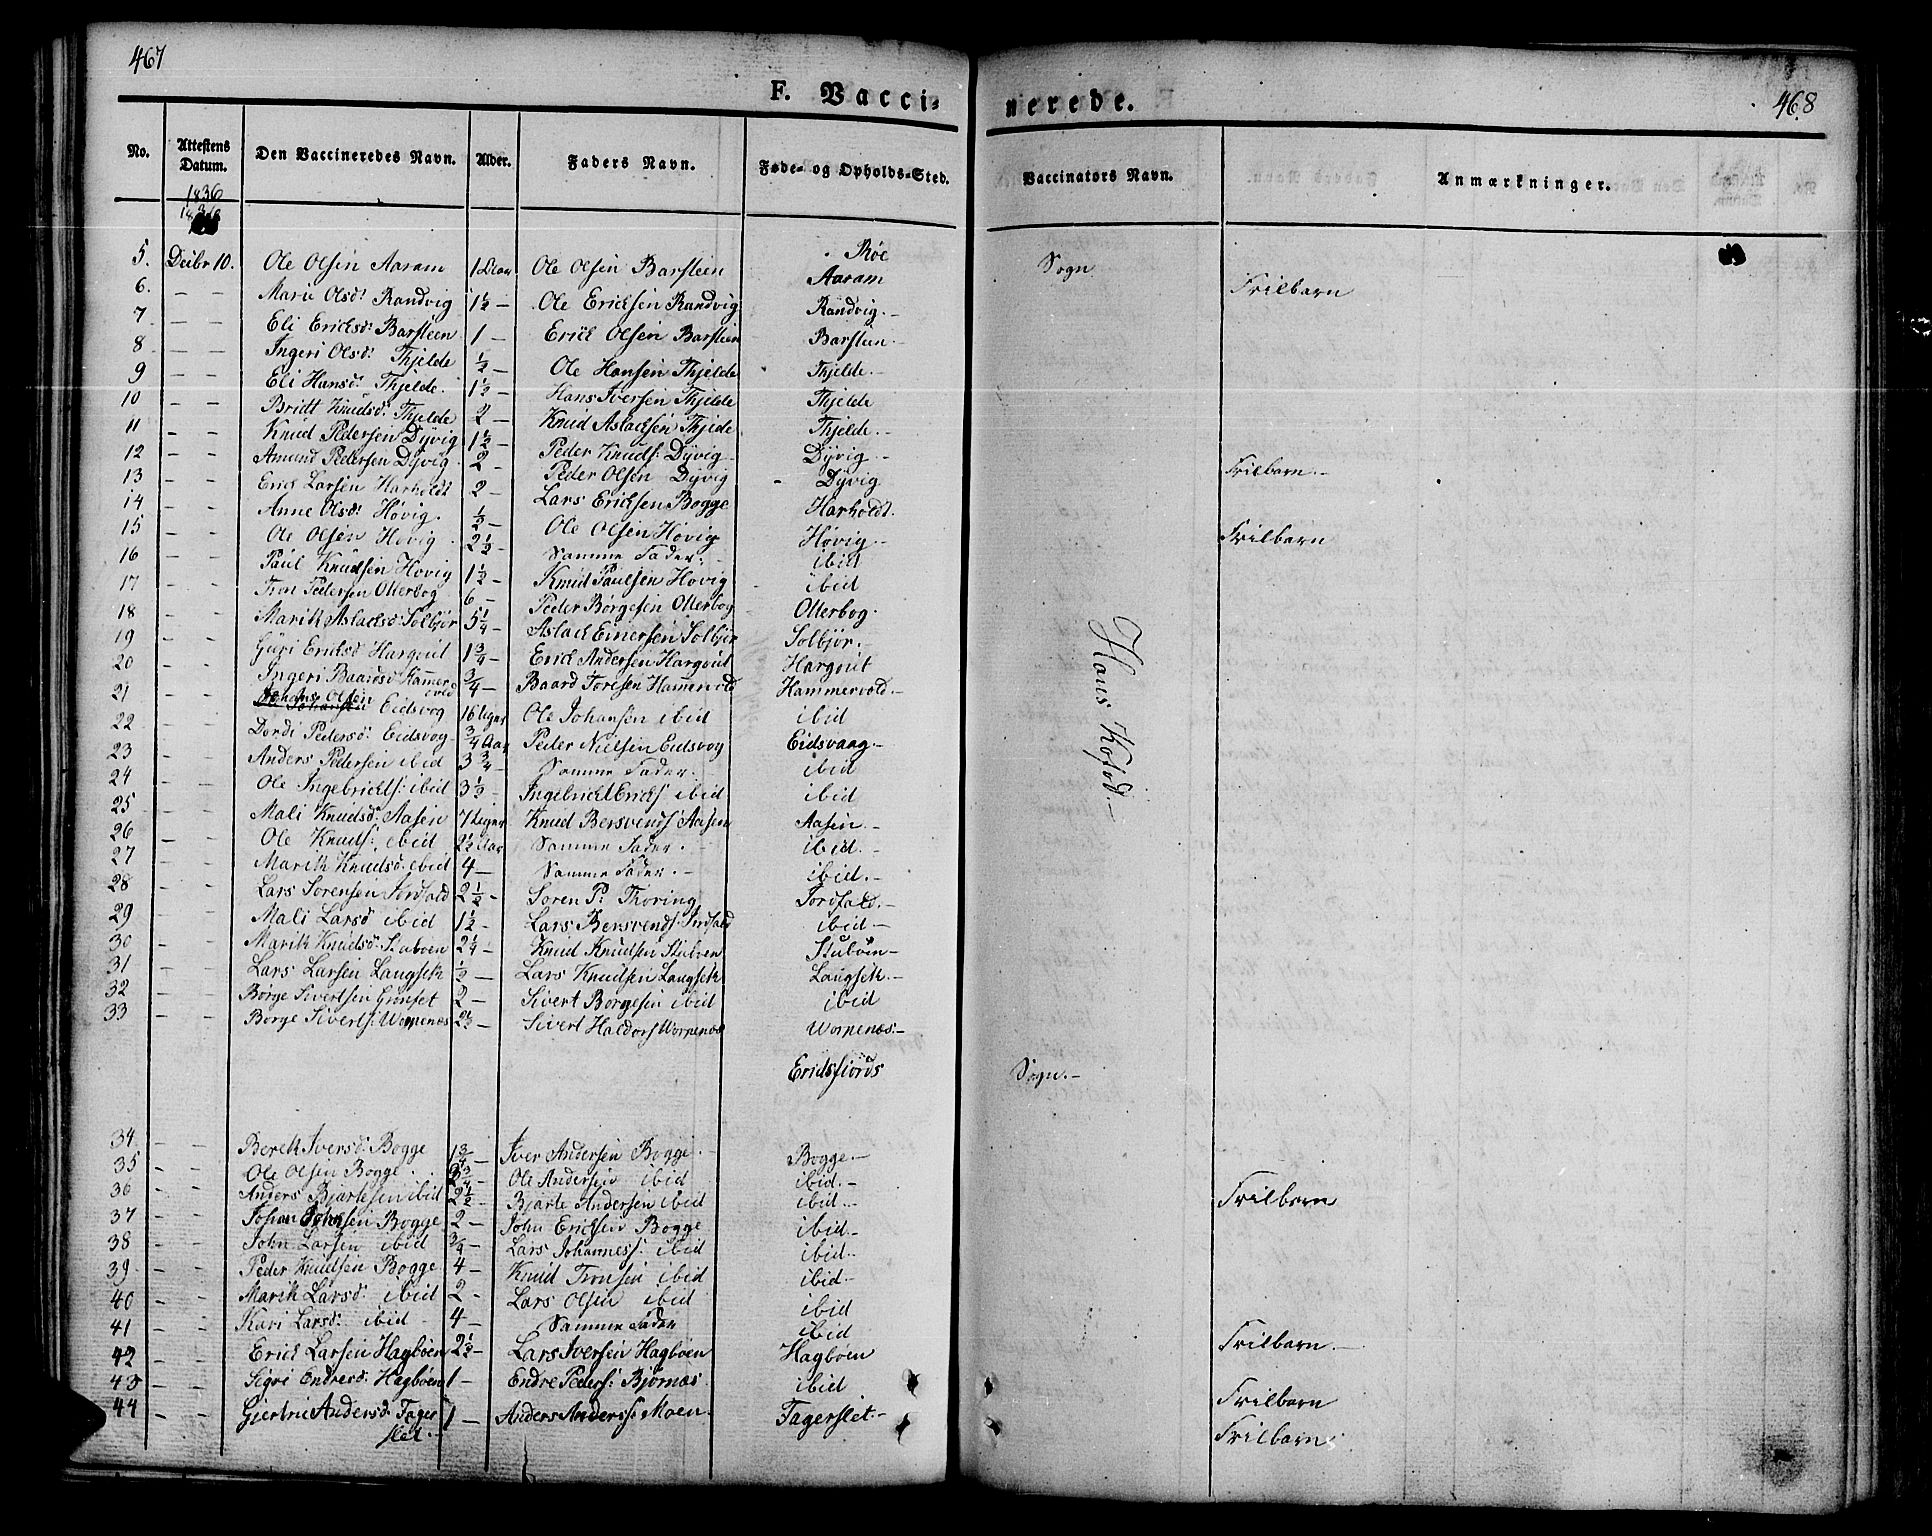 467
468
F. Vacci-
nerede.
No. Attestens Datum. Den Vaccineredes Navn. Alder. Faders Navn. Føde- og Opholds-Sted. Vaccinators Navn. Anmærkninger.
1836
1836
Røe Sogn
5. Decbr 10. Ole Olsen Aaram 1 Aar Ole Olsen Barsteen Aaram Frilbarn
6. – – Marie Olsd: Randvig 1½ – Ole Ericksen Randvig Randvig. –
7 – – Eli Ericksd: Barsteen 1 – Erick Olsen Barstein Barsteen. –
8 – – Ingeri Olsd: Thjelde ½ – Ole Hansen Thjelde Thjelde. –
9 – – Eli Hansd: Thjelde. 1½ – Hans Iversen Thjelde Thjelde
10 – – Bridt Knudsd: Thjelde 2 – Knud Aslacksen Thjelde Thjelde. –
11 – – Knud Pedersen Dyvig 1½ – Peder Knuds: Dyvig – Dyvig –
12 – – Amund Pedersen Dyvig 2 – Peder Olsen Dyvig Dyvig Frilbarn. –
13 – – Erick Larsen Harholdt 2 – Lars Ericksen Bogge Harholdt.
14 – – Anne Olsd: Høvig. ½ – Ole Olsen Høvig Høvig – Frilbarn
15 – – Ole Olsen Høvig 2½ – Samme Fader. – ibid
16 – – Paul Knudsen Høvig 1½ – Knud Paulsen Høvig ibid
17 – – Tron Pedersen Otterbog 6 – Peder Børgesen Otterbog Otterbog.
18 – – Marith Aslacksd: Solbjør 5¼ – Aslack Einersen Solbjør Solbjør. –
19 – – Guri Ericksd Hargout 1¾ – Erick Andersen Hargout Hargout
20 – – Ingeri Baardsd Hamervold ¾ – Baard Toresen Hamervold Hammervold. –
21 – – Johans Olsen Eidsvog 16 Uger Ole Johansen ibid ibid
22 – – Dordi Pedersd: Eidsvog ¾ Aar Peder Nielsen Eidsvog Eidsvaag –
23 – – Anders Pedersen ibid 3¾ – Samme Fader. ibid
24 – – Ole Ingebrichts: ibid 3½ – Ingebricht Ericks: ibid ibid
25 – – Mali Knudsd: Aasen 7 Uger Knud Bersvends: Aasen Aasen. –
26 – – Ole Knuds: ibid 2½ Aar Samme Fader. ibid. –
27 – – Marith Knudsd: ibid 4 – Samme Fader. – ibid. –
28 – – Lars Sorensen Jordfald 2½ – Soren P: Thoring Jordfald. –
29 – – Mali Larsd ibid 1½ – Lars Bersvends: Jordfald ibid –
30 – – Marith Knudsd: Stubøen 2¼ – Knud Knudsen Stubøen Stubøen –
31 – – Lars Larsen Langseth ½ – Lars Knudsen Langseth Langseth. –
32 – – Børge Sivertsen Gunset 2 – Sivert Borgesen ibid ibid
33 – – Borge Siverts: Worpenæs 2½ – Sivert Haldors Worpenæs Worpenæs. –
Hans Kofod. –
Eridsfiords Sogn. –
34. – – Berith Iversd: Bogge 1¾ – Iver Andersen Bogge. – Bogge. –
35 – – Ole Olsen Bogge. ¾ – Ole Andersen ibid ibid. – Frilbarn
36 – – Anders Bjartesen ibid 2½ – Bjarte Andersen ibid ibid –
37 – – Johan Johnsen Bogge 2 – John Ericksen Bogge ibid –
38 – – John Larsen ibid ¾ – Lars Johanness: ibid ibid –
39 – – Peder Knudsen Bogge 4 – Knud Tronsen ibid ibid –
40 – – Marith Larsd: ibid 2 – Lars Olsen ibid ibid
41 – – Kari Larsd: ibid – 4 – Samme Fader ibid
42 – – Erick Larsen Hagbøen 2½ – Lars Iversen Hagbøen Hagbøen Frilbarn. –
43 – – Sigri Endresd: Hagbøen 1 – Endre Peders: Bjørnæs. ibid Frilbarn
44 – – Giertru Andersd: Tagerslet. – 1 – Anders Anders: Moen. Tagerslet. – Frilbarn